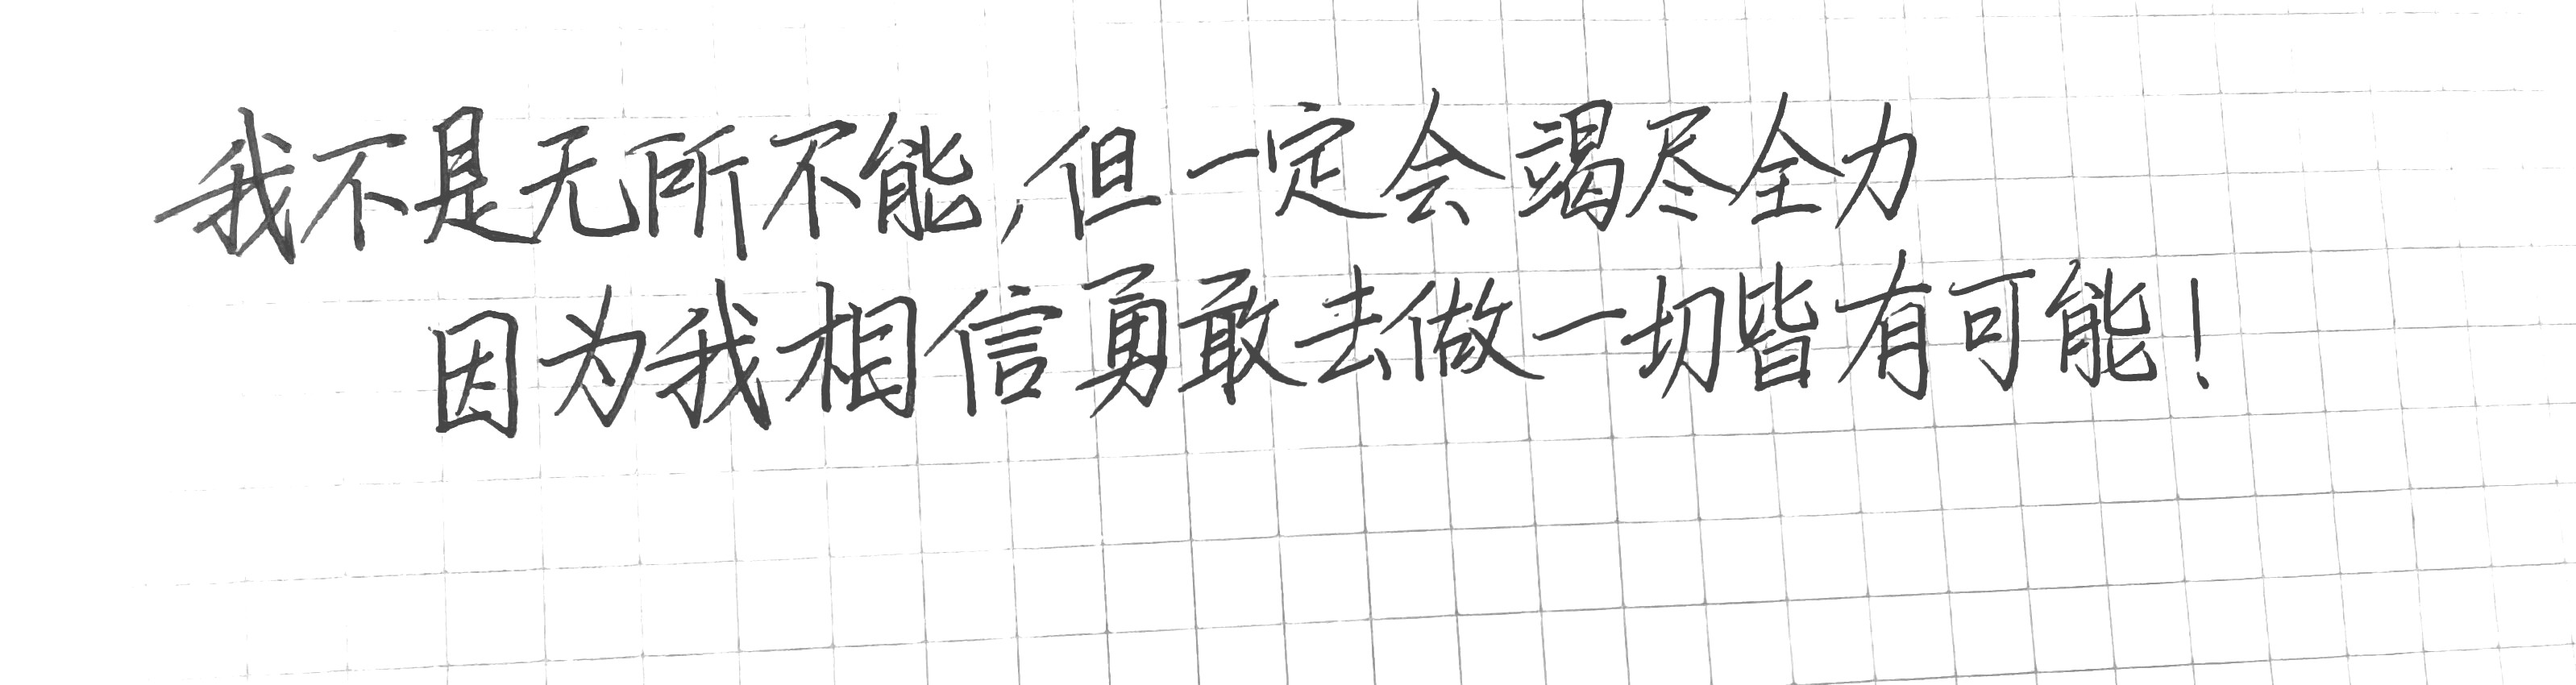 我不是无所不能,但一定会竭尽全力
因为我相信勇敢去做一切皆有可能!